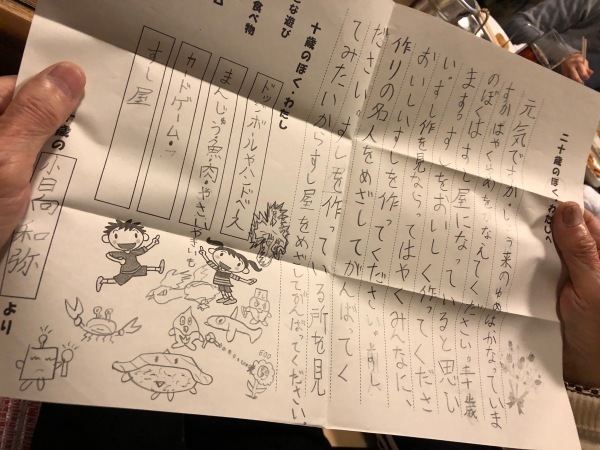 二十歳のぼく・わたしへ
元気ですか。しょう来のゆめはかなっていま
すか。はやくゆめをかなえてください。十歳
のぼくはすし屋になっていると思い
ます。すしをおいしく作ってくださ
い。すし作を見ならってはやくみんなに、
おいしいすしを作ってください。すし
作りの名人をめざしてがんばってく
ださい。すしを作っている所を見
てみたいからすし屋をめざしてがんばってください。
十歳のぼく・わたし
きな遊び
ドッジボールやハンドベース
食べ物
まんじゅう・魚・肉・やさい・やきいも
カードゲーム
すし屋
十歳の
小日向和弥
より
600